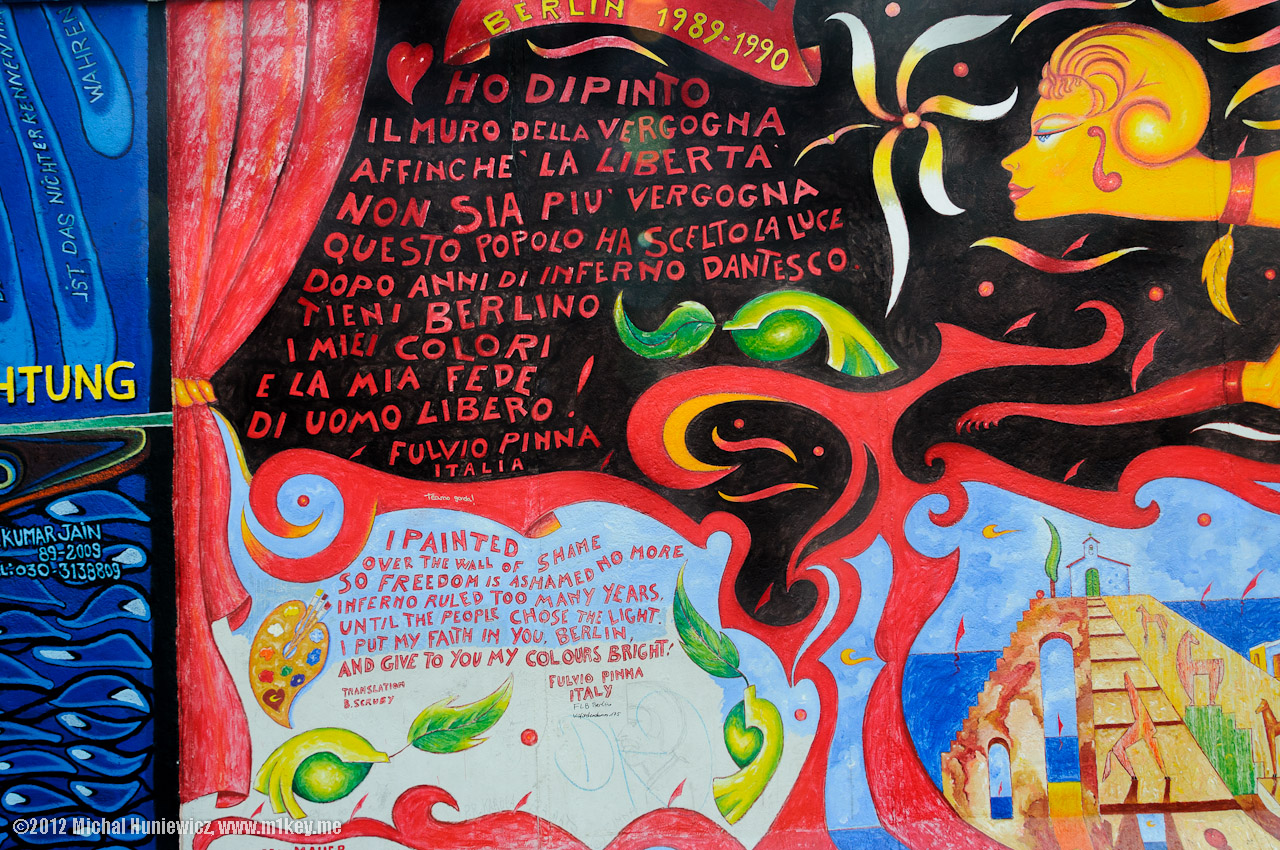 WAHREN
IST DAS NICHTERKENNEN
HTUNG
KUMAR JAIN
89-2009
L:030-3138809
BERLIN 1989-1990
HO DIPINTO
IL MURO DELLA VERGOGNA
AFFINCHE` LA LIBERTA`
NON SIA PIU' VERGOGNA
QUESTO POPOLO HA SCELTO LA LUCE
DOPO ANNI DI INFERNO DANTESCO.
TIENI BERLINO
I MIEI COLORI
E LA MIA FEDE
DI UOMO LIBERO!
FULVIO PINNA
ITALIA
I PAINTED
OVER THE WALL OF SHAME
SO FREEDOM IS ASHAMED NO MORE
INFERNO RULED TOO MANY YEARS,
UNTIL THE PEOPLE CHOSE THE LIGHT.
I PUT MY FAITH IN YOU, BERLIN,
AND GIVE TO YOU MY COLOURS BRIGHT!
FULVIO PINNA
ITALY
TRANSLATION
MAUER
©2012 Michal Huniewicz, www.m1key.me